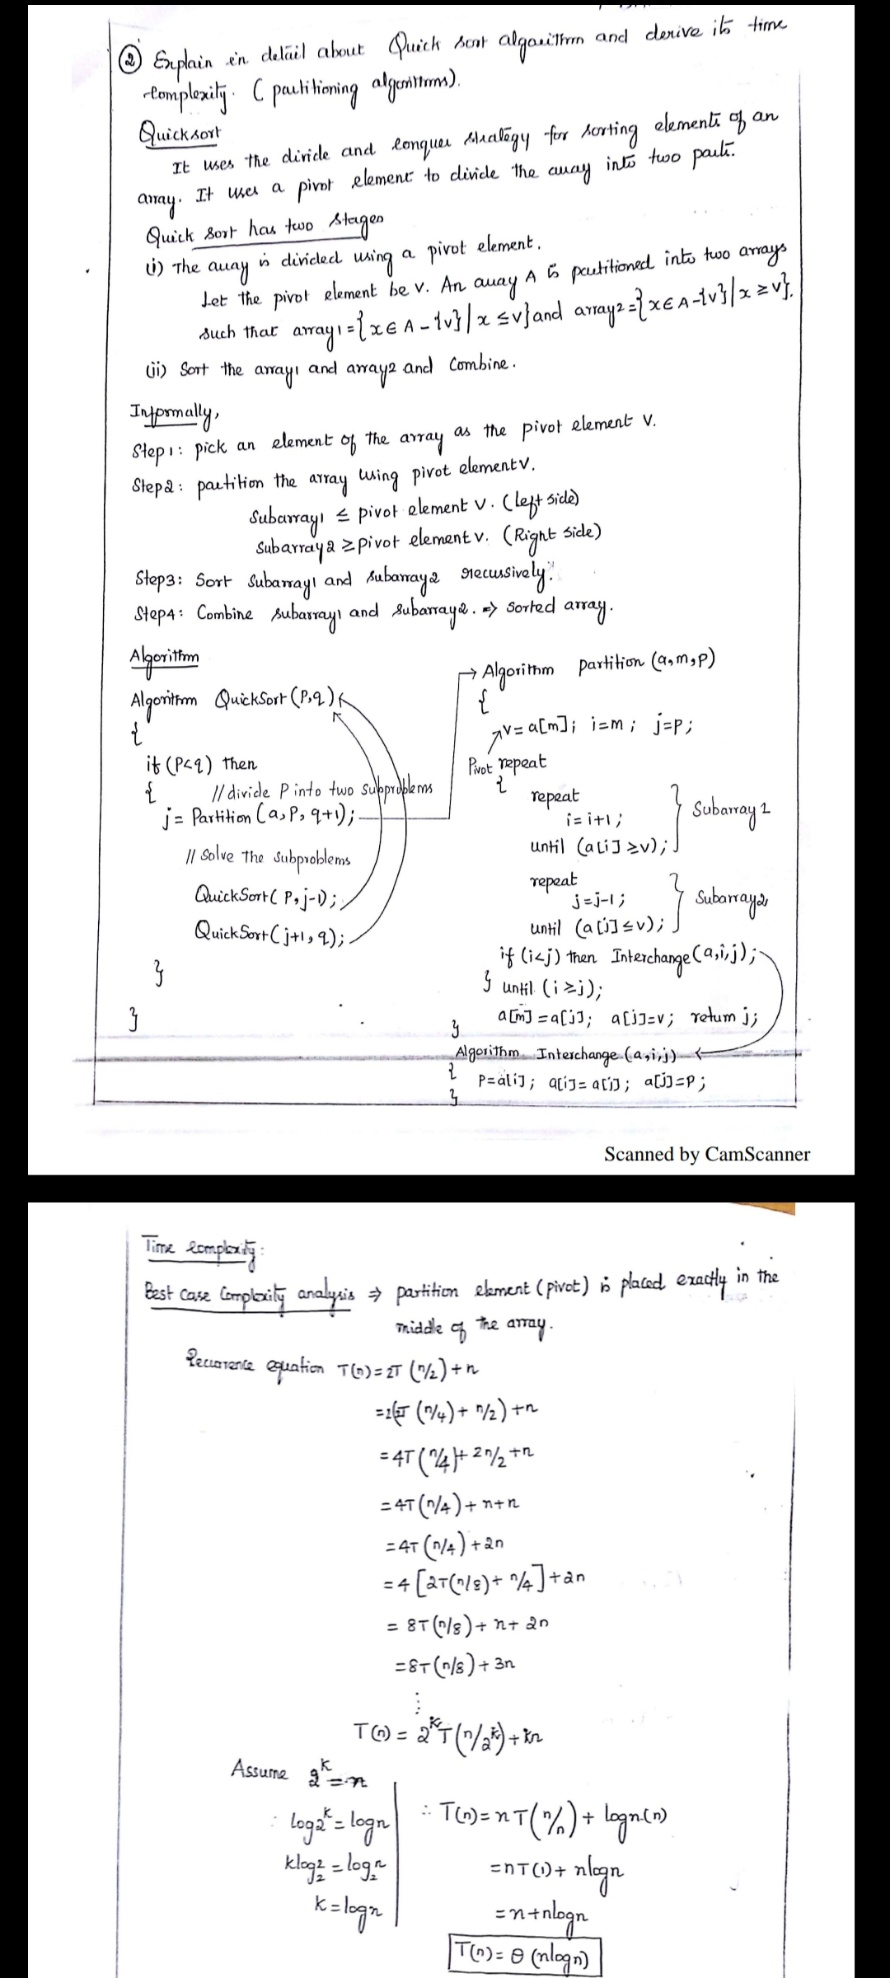 ② Explain in detail about Quick sort algorithm and derive its time
complexity. (partitioning algorithms).
Quicksort
It uses the divide and conquer strategy for sorting elements of an
array. It uses a pivot element to divide the array into two parts.
Quick Sort has two stages
(i) The array is divided using a pivot element.
Let the pivot element be v. An array A is partitioned into two arrays
such that array1={x∈A-{v}|x≤v} and array2={x∈A-{v}|x≥v}.
(ii) Sort the array1 and array2 and Combine.
Informally,
Step1: pick an element of the array as the pivot element v.
Step2: partition the array using pivot element v.
Subarray1 ≤ pivot element v. (left side)
Subarray2 ≥ pivot element v. (Right side)
Step3: Sort Subarray1 and Subarray2 recursively.
Step4: Combine subarray1 and subarray2. ⇒ Sorted array.
Algorithm
Algorithm QuickSort(P,q)
{
if (P<q) then
{ // divide P into two Subproblems
j= Partition (a,P,q+1);
// Solve The Subproblems
QuickSort(P,j-1);
QuickSort(j+1,q);
}
}
→ Algorithm partition (a,m,P)
{
v=a[m]; i=m; j=P;
Pivot repeat
{
repeat
i=i+1;
until (a[i]≥v);
Subarray 1
repeat
j=j-1;
until (a[j]≤v);
Subarray2
if (i<j) then Interchange(a,i,j);
} until (i≥j);
a[m]=a[j]; a[j]=v; return j;
}
Algorithm Interchange(a,i,j)
{
P=a[i]; a[i]=a[j]; a[j]=P;
}
Scanned by CamScanner
Time Complexity:
Best Case Complexity analysis ⇒ partition element (pivot) is placed exactly in the
middle of the array.
Recurrence equation T(n)=2T(n/2)+n
=2(2T(n/4)+n/2)+n
=4T(n/4)+2n/2+n
=4T(n/4)+n+n
=4T(n/4)+2n
=4[2T(n/8)+n/4]+2n
=8T(n/8)+n+2n
=8T(n/8)+3n
⋮
T(n)=2^kT(n/2^k)+kn
Assume 2^k=n
log2^k=logn
klog₂2=log₂n
k=logn
∴ T(n)=nT(n/n)+logn(n)
=nT(1)+nlogn
=n+nlogn
T(n)=θ(nlogn)